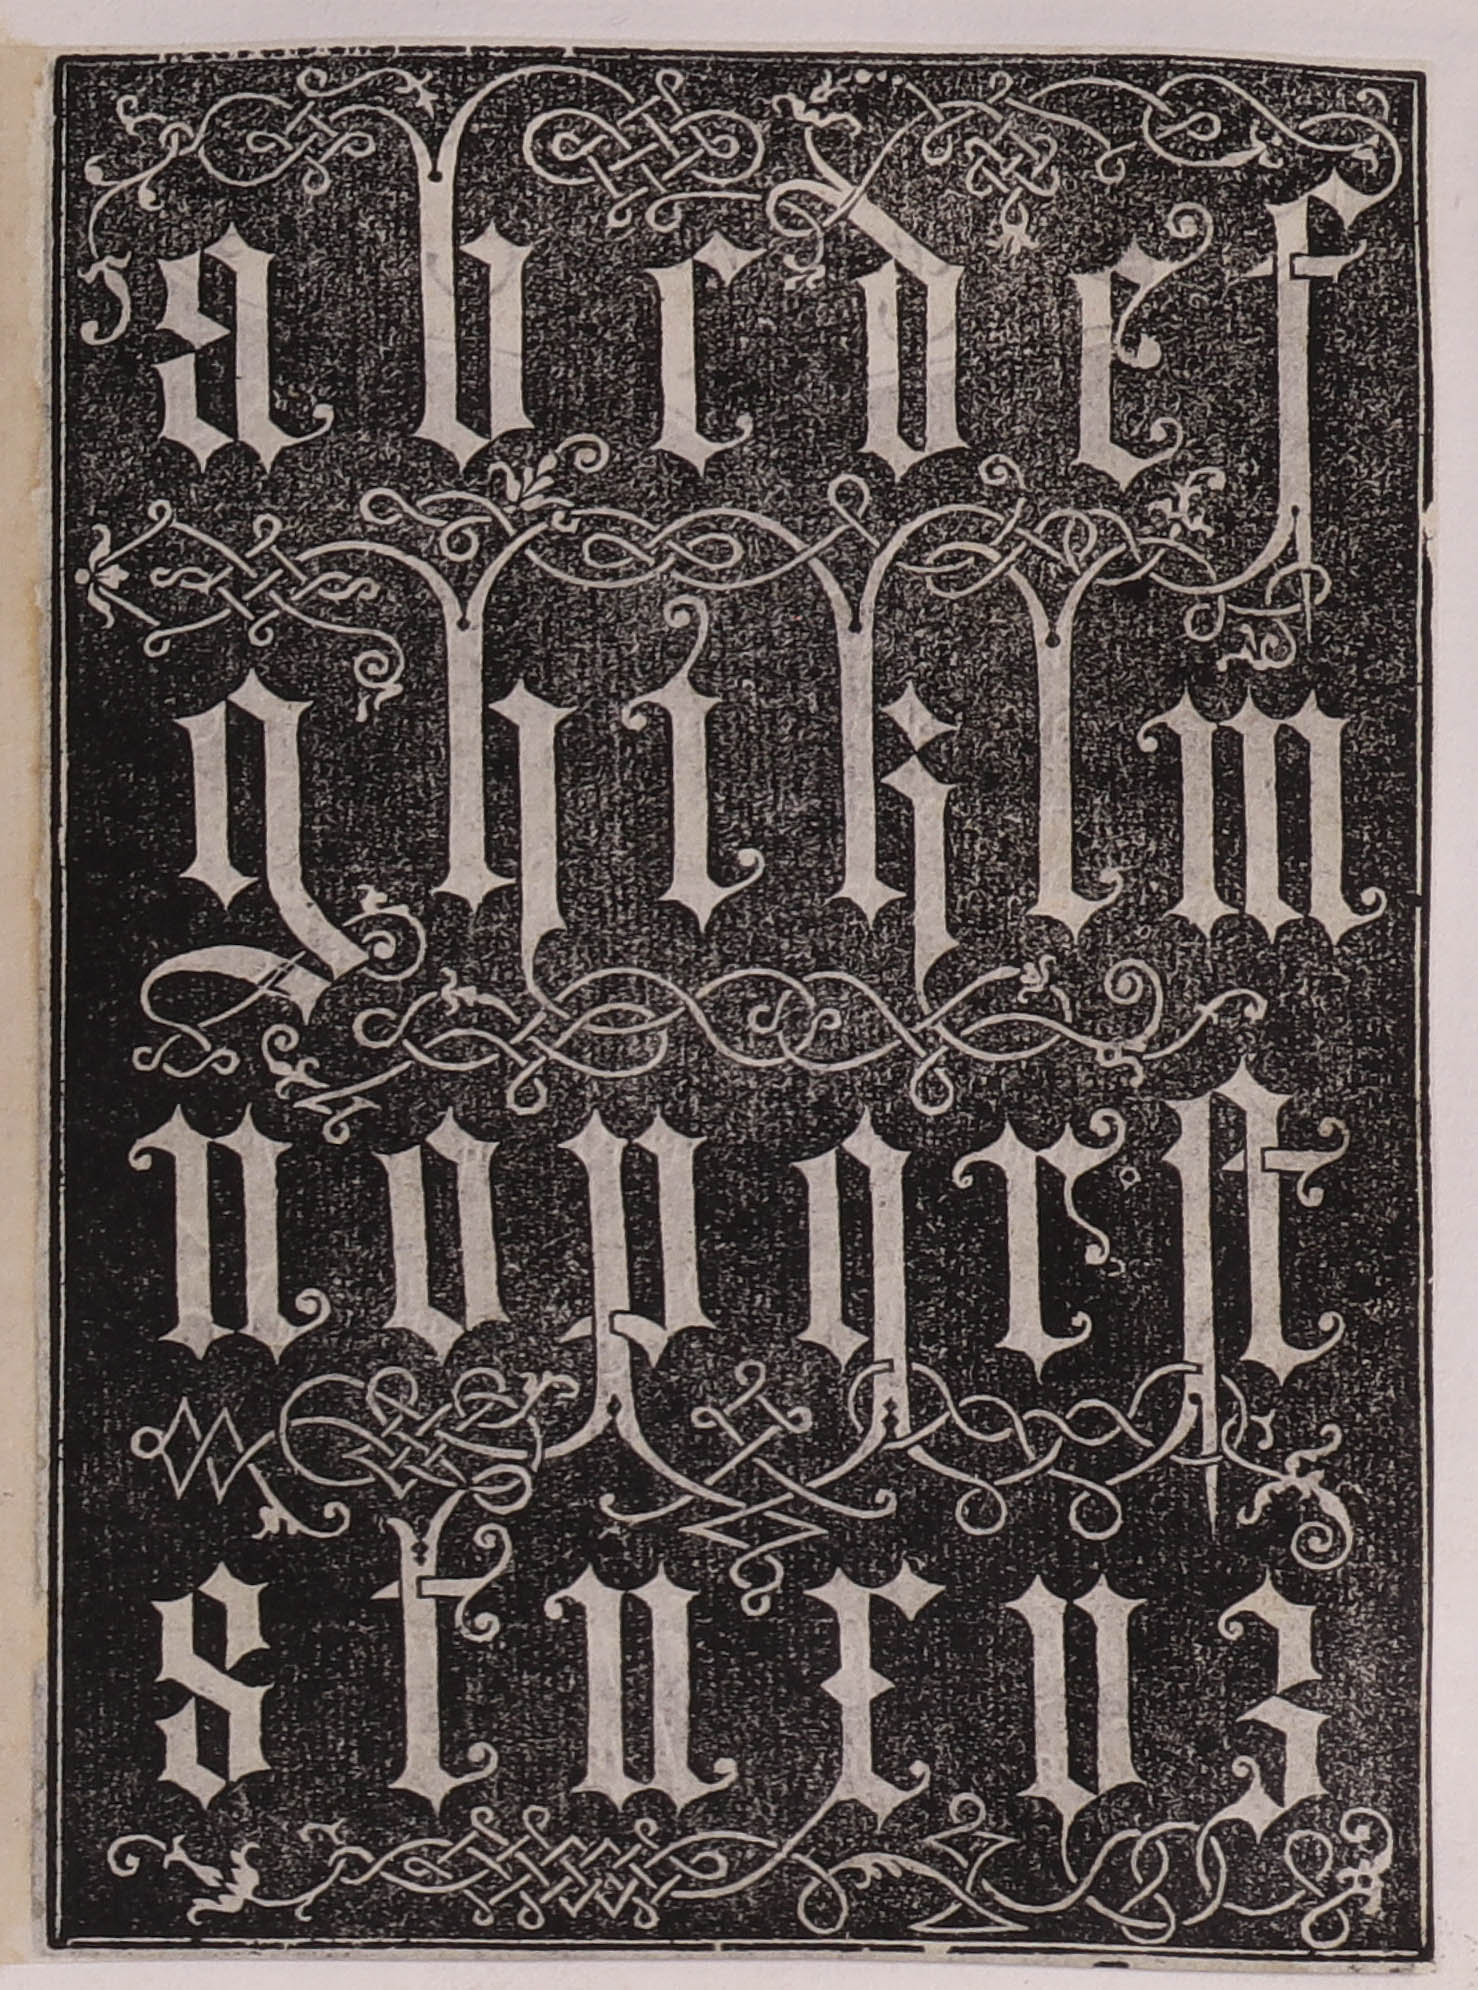 a b c d e f
g h i k l m
n o p q r ſt
s t u x y z